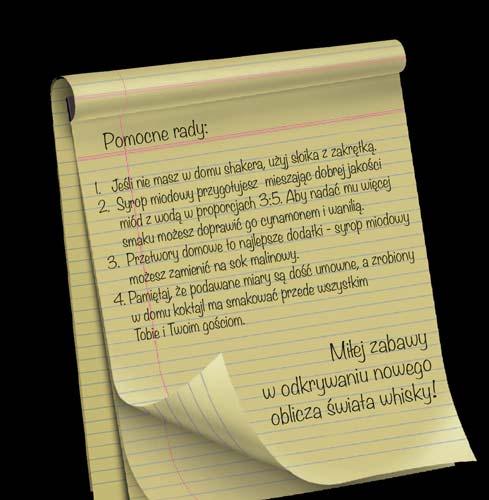 Pomocne rady:
1. Jeśli nie masz w domu shakera, użyj słoika z zakrętką.
2. Syrop miodowy przygotujesz mieszając dobrej jakości
miód z wodą w proporcjach 3:5. Aby nadać mu więcej
smaku możesz doprawić go cynamonem i wanilią.
3. Przetwory domowe to najlepsze dodatki - syrop miodowy
możesz zamienić na sok malinowy.
4. Pamiętaj, że podawane miary są dość umowne, a zrobiony
w domu koktajl ma smakować przede wszystkim
Tobie i Twoim gościom.
Miłej zabawy
w odkrywaniu nowego
oblicza świata whisky!